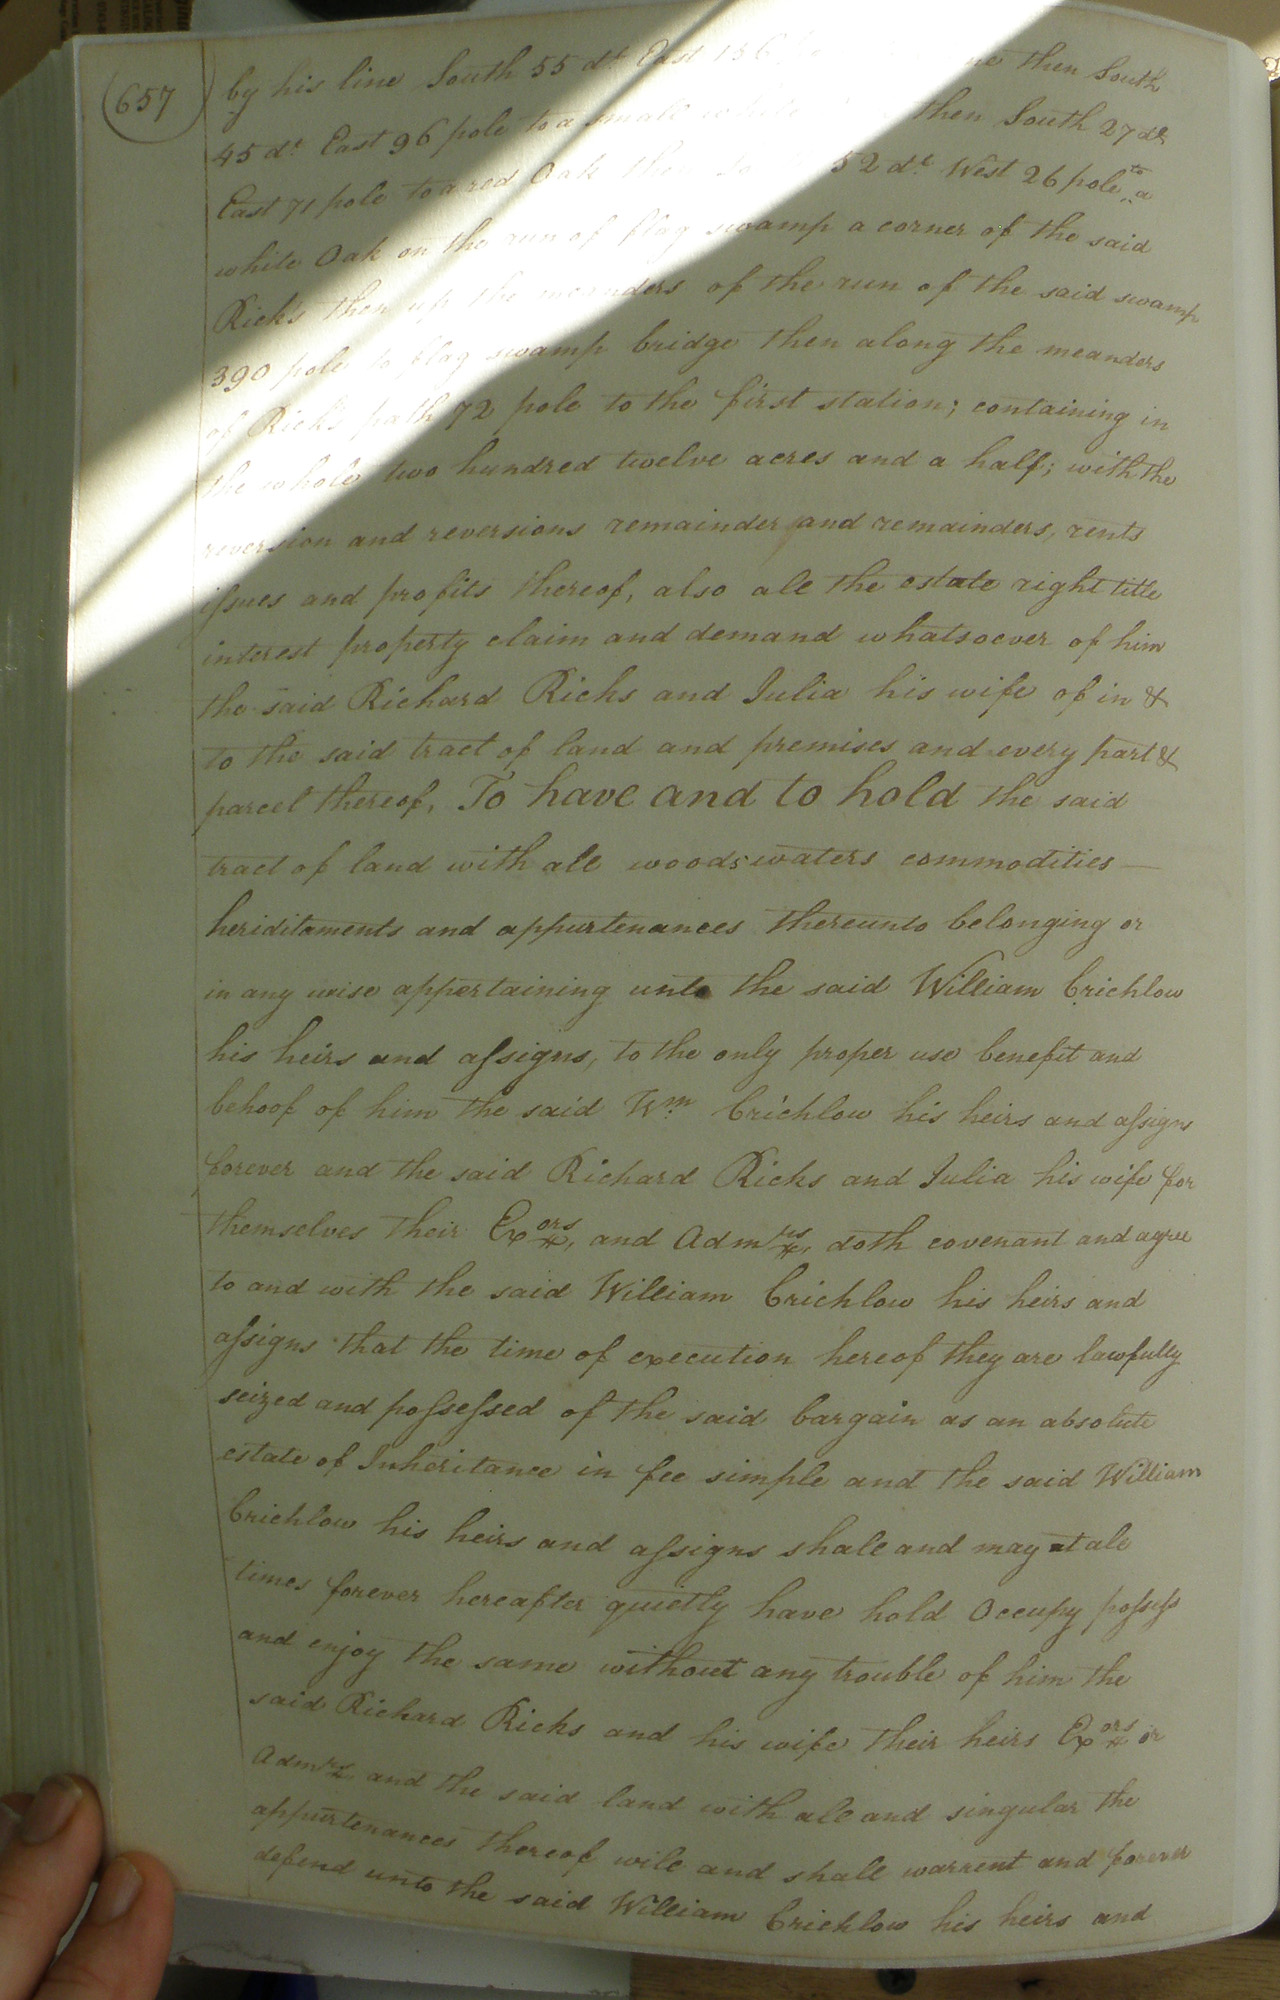 657
by his line South 55 dt East 136 then South
45 dt East 96 pole to a small white then South 27 dt
East 71 pole to a red Oak then 52 dt West 26 pole to a
white Oak on the run of flag swamp a corner of the said
Ricks then up the meanders of the run of the said swamp
390 pole to flag swamp bridge then along the meanders
of Ricks path 72 pole to the first station; containing in
the whole two hundred twelve acres and a half; with the
reversion and reversions remainder and remainders, rents
issues and profits thereof, also all the estate right title
interest property claim and demand whatsoever of him
the said Richard Ricks and Julia his wife of in &
to the said tract of land and premises and every part &
parcel thereof, To have and to hold the said
tract of land with all woods waters commodities —
heriditaments and appurtenances thereunto belonging or
in any wise appertaining unto the said William Crichlow
his heirs and assigns, to the only proper use benefit and
behoof of him the said Wm Crichlow his heirs and assigns
forever and the said Richard Ricks and Julia his wife for
themselves their Exors, and Admrs, doth covenant and agree
to and with the said William Crichlow his heirs and
assigns that the time of execution hereof they are lawfully
seized and possessed of the said bargain as an absolute
estate of Inheritance in fee simple and the said William
Crichlow his heirs and assigns shall and may at all
times forever hereafter quietly have hold Occupy possess
and enjoy the same without any trouble of him the
said Richard Ricks and his wife their heirs Exors or
Admrs and the said land with all and singular the
appurtenances thereof will and shall warrent and forever
defend unto the said William Crichlow his heirs and